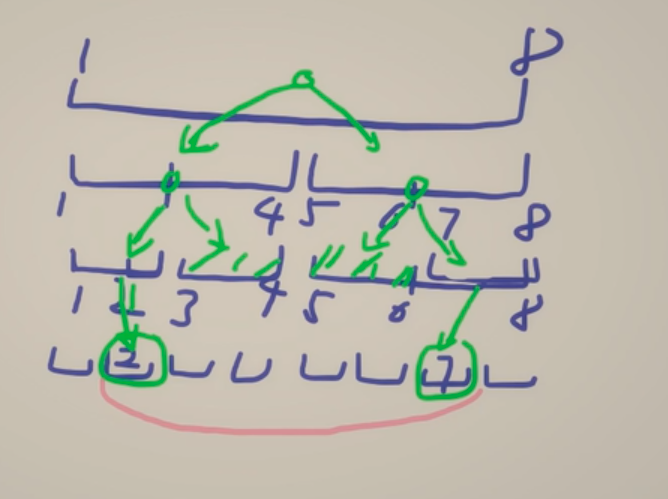 1 8
1 4 5 6 7 8
1 2 3 4 5 6 8
2 7